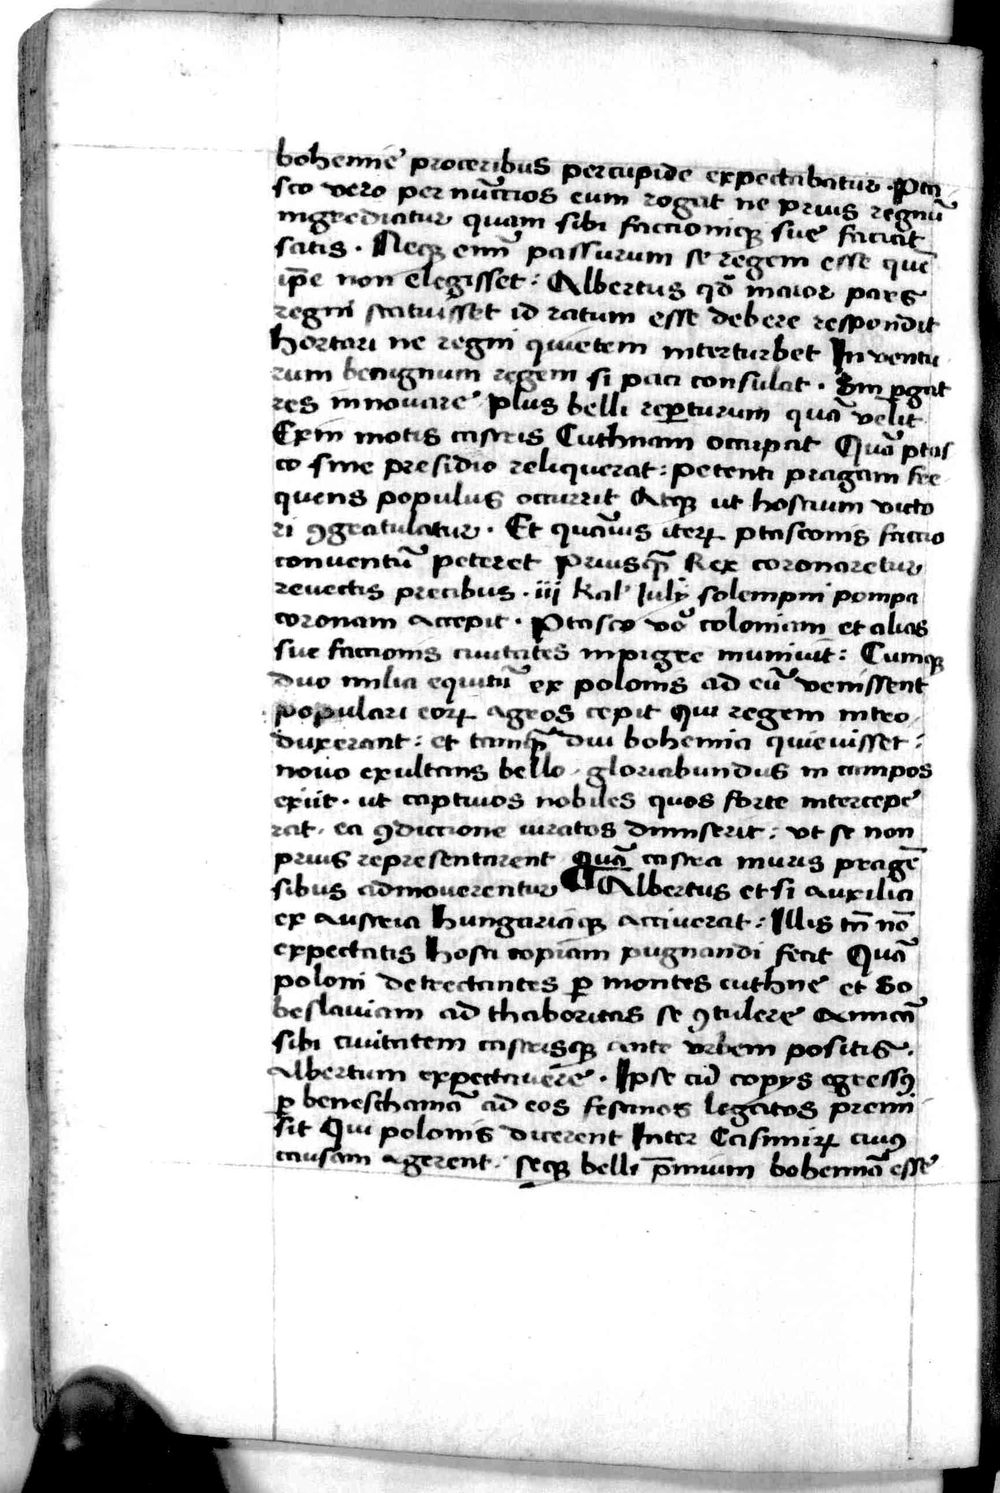 bohemie proceribus percupide expectabatur . Pta
sco vero per nūctios eum rogat ne prius regnū
ingrediatur quam sibi factioniqꝫ sue faciat
satis . Neqꝫ enī passurum se regem esse quē
ip̄e non elegisset : Albertus qd̄ maior pars
regni statuisset id ratum esse debere respondit
hortari ne regni quietem interturbet Inventu
rum benignum regem si paci consulat . Sin ꝑgat
res innovare plus belli reꝑturum quā velit
Exin motis castris Cuthnam occupat Quā ptas
co sine presidio reliquerat : petenti pragam fre
quens populus occurrit Atqꝫ ut hostium victo
ri ꝯgratulatur . Et quāuis iterꝝ ptasconis factio
conventū peteret priusqꝫ̄ Rex coronaretur
reuectis precibus . iij kal' Iulij solempni pompa
coronam accepit . Ptasco vo᷑ coloniam et alias
sue factionis ciuitates inpigre muniuit : Cumqꝫ
duo milia equitū ex polonis ad eū venissent
populari eorꝝ agros cepit Qui regem intro
duxerant : et tamqꝫ̄ diu bohemia quieuisset :
novo exultans bello gloriabundus in campos
exiit . ut captiuos nobiles quos forte intercepe
rat . ea ꝯdictione iuratos dimiserit : vt se non
prius representarent Quā castra muris pragē
sibus admouerentur ¶ Albertus et si auxilia
ex austria hungariaqꝫ acciuerat : Illis tn̄ nō
expectatis hosti copiam pugnandi fecit Quā
poloni detrectantes ꝑ montes cuthne et So
beslauiam ad thaboritas se ꝯtulere Amicā
sibi ciuitatem castrisqꝫ ante vrbem positis .
Albertum expectauere . Ipse cū copijs egressꝰ
ꝑ beneschamā ad eos festinos legatos premi
sit Qui polonis dicerent Inter Casimirꝝ cuiꝰ
causam agerent . seqꝫ belli p̄mium bohemiā esse